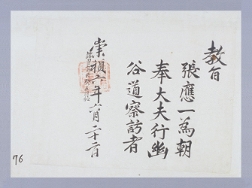 教旨
張應一為朝
奉大夫行幽
谷道察訪者
崇禎六年六月二十二日
76